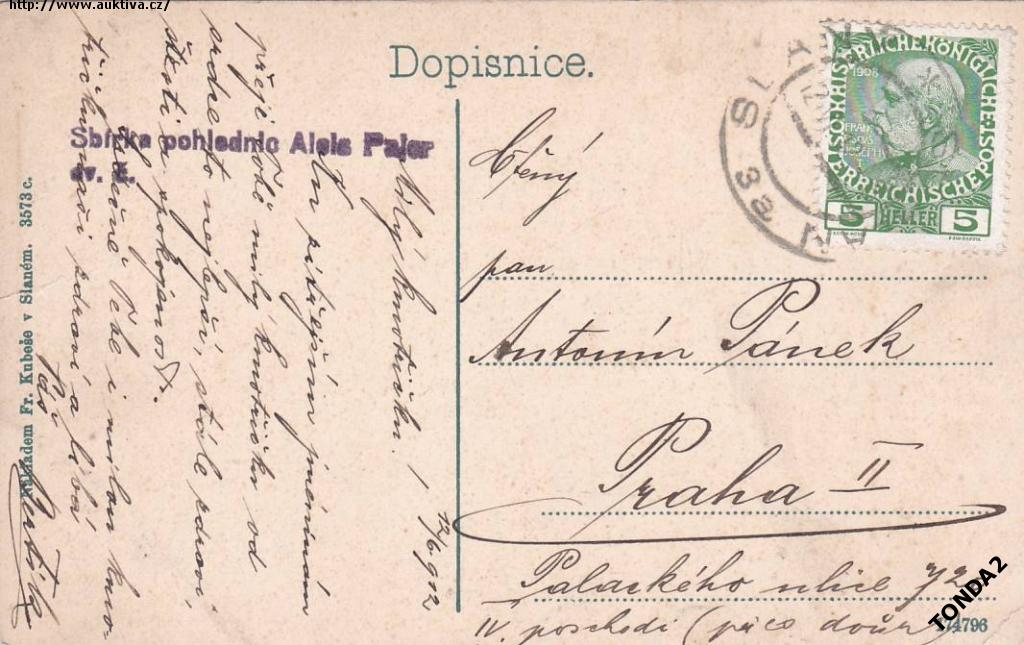 http://www.auktiva.cz/
Dopisnice.
Sbírka pohlednic Alois Pajer
sv. č.
Ctěný
pan
Antonín Pánek
Praha II
Palackého ulice 72
IV. poschodí (přes dvůr)
Milý kmotříčku!
12/6 912
Ku příštějším jmeninám
přeje Tobě milý kmotříčku od
srdce to nejlepší, stále zdraví,
štěstí a spokojenost.
srdečně Tebe i milou kmo-
třičku naši zdraví a líbá
Nákladem Fr. Kubeše v Slaném. 3573 c.
KAISERLICHE KÖNIGLICHE ÖSTERREICHISCHE POST
1908
FRANZ
JOSEPH
5 HELLER 5
SLANÝ
3a
TONDA2
4796